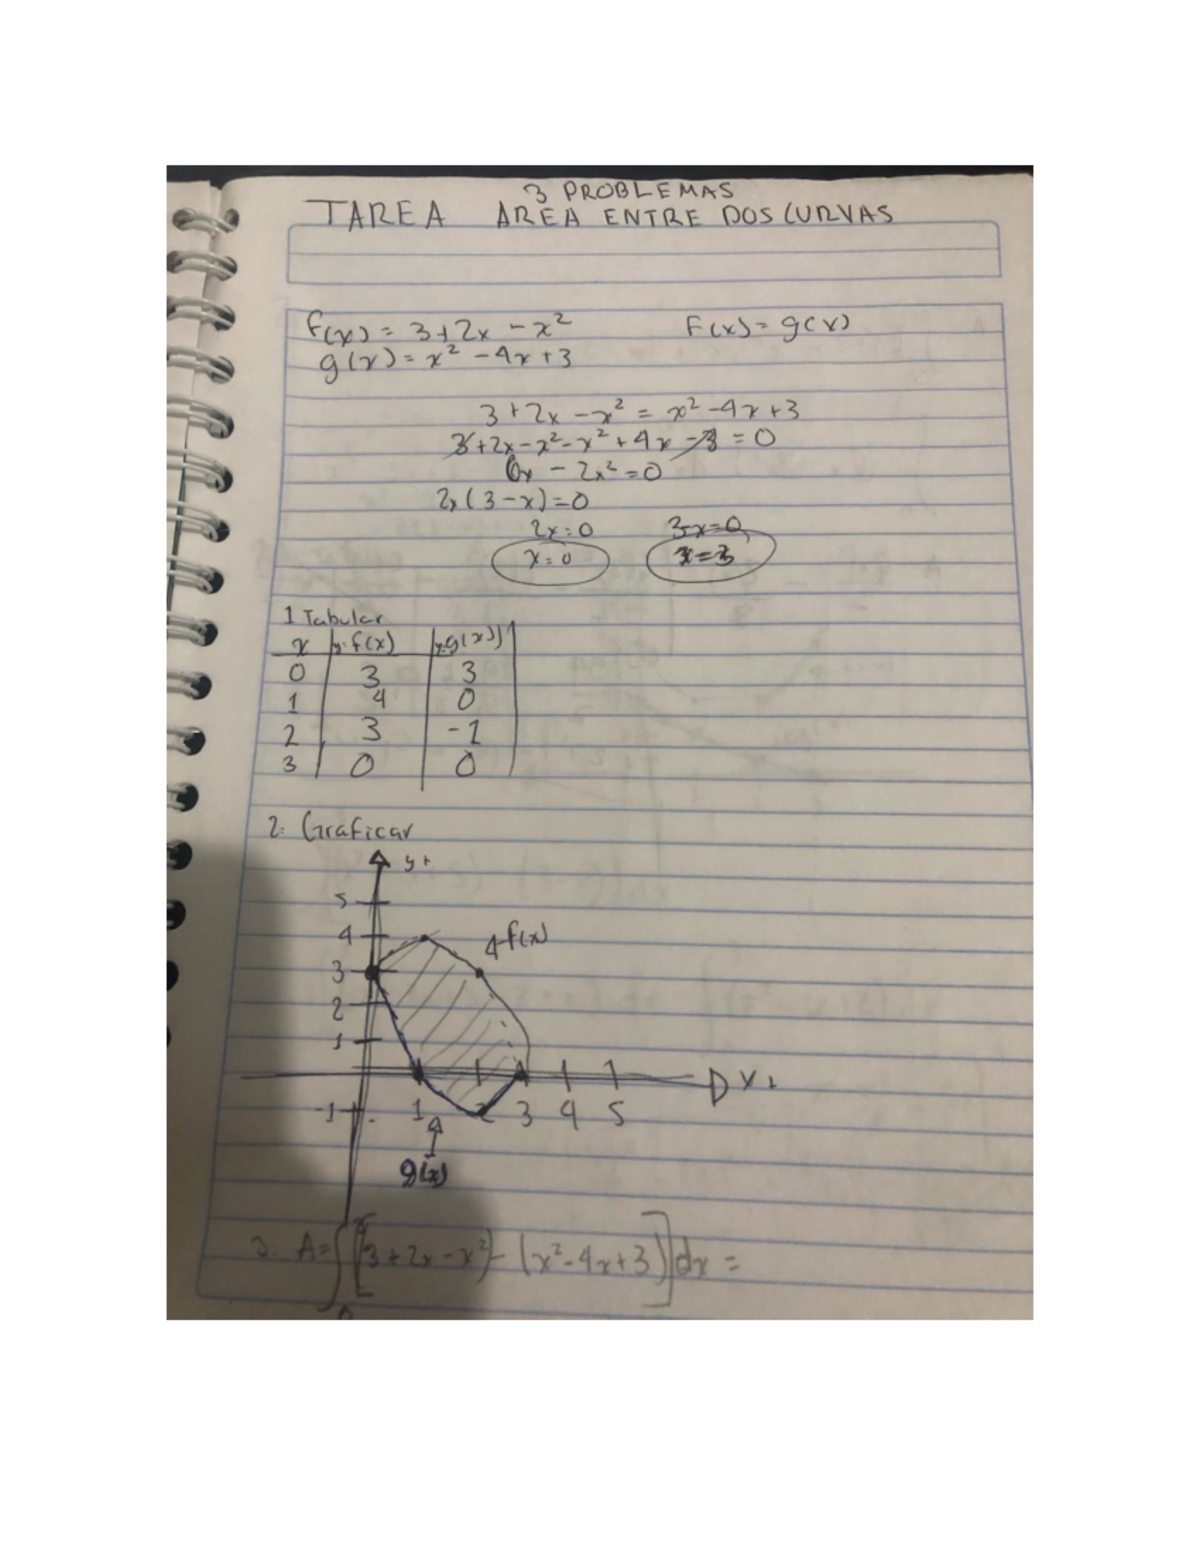 3 PROBLEMAS
TAREA AREA ENTRE DOS CURVAS
f(x) = 3+2x - x² F(x) = g(x)
g(x) = x² - 4x + 3
3 + 2x - x² = x² - 4x + 3
3 + 2x - x² - x² + 4x - 3 = 0
6x - 2x² = 0
2x(3 - x) = 0
2x = 0 3-x=0
x = 0 x = 3
1 Tabular
x y=f(x) y=g(x)
0 3 3
1 4 0
2 3 -1
3 0 0
2: Graficar
y+
5
4 f(x)
3
2
1
x+
-1 1 2 3 4 5
g(x)
3: A = ∫ [(3+2x-x²) - (x²-4x+3)] dx =
0